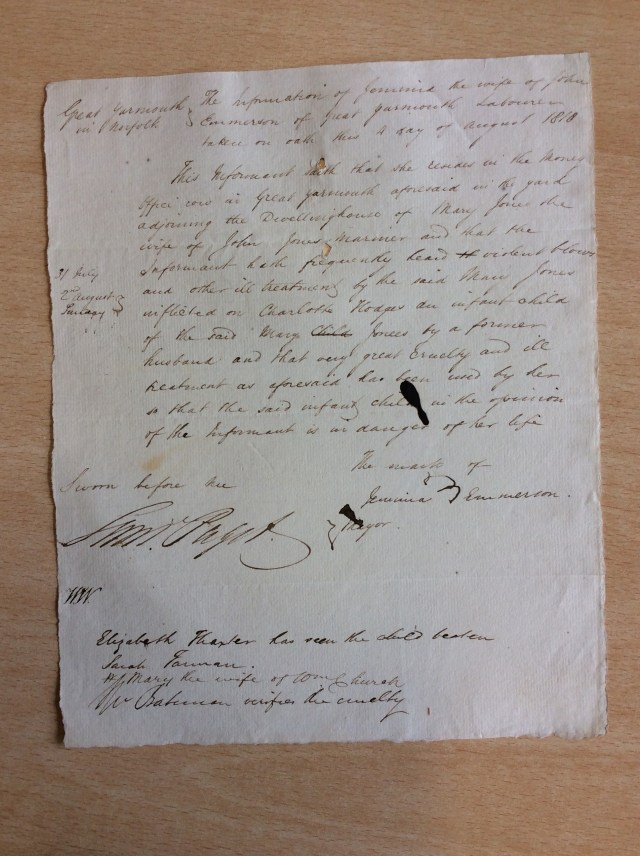 Great Yarmouth in Norfolk
The Information of Jemima the wife of John
Emmerson of Great Yarmouth Labourer
taken on oath this 4 day of August 1818
This Informant saith that she resides in the Money
Office row in Great Yarmouth aforesaid in a yard
adjoining the Dwellinghouse of Mary Jones the
wife of John Jones Mariner and that the
Informant hath frequently heard violent blows
31 July
2d August &
Tuesday
and other ill treatment by the said Mary Jones
inflicted on Charlotte Hodges an infant child
of the said Mary Child Jones by a former
husband and that very great Cruelty and ill
treatment as aforesaid has been used by her
so that the said infant child in the opinion
of the Informant is in danger of her life
Sworn before me
The mark of
Jemima Emmerson.
Saml. Paget.
Mayor.
Wit.
Elizabeth Thaxter has seen the child beaten
Sarah Farman.
Mary the wife of Wm Church
Bateman verifies the cruelty